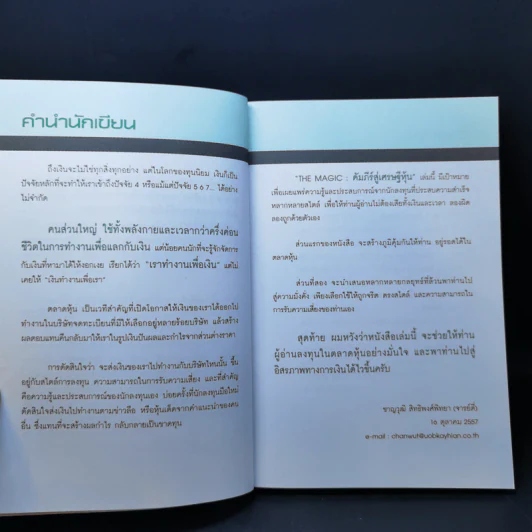 คำนำนักเขียน
ถึงเงินจะไม่ใช่ทุกสิ่งทุกอย่าง แต่ในโลกของทุนนิยม เงินก็เป็น
ปัจจัยหลักที่จะทำให้เราเข้าถึงปัจจัย 4 หรือแม้แต่ปัจจัย 5 6 7... ได้อย่าง
ไม่จำกัด
คนส่วนใหญ่ ใช้ทั้งพลังกายและเวลากว่าครึ่งค่อน
ชีวิตในการทำงานเพื่อแลกกับเงิน แต่น้อยคนนักที่จะรู้จักจัดการ
กับเงินที่หามาได้ให้งอกเงย เรียกได้ว่า "เราทำงานเพื่อเงิน" แต่ไม่
เคยให้ "เงินทำงานเพื่อเรา"
ตลาดหุ้น เป็นเวทีสำคัญที่เปิดโอกาสให้เงินของเราได้ออกไป
ทำงานในบริษัทจดทะเบียนที่มีให้เลือกอยู่หลายร้อยบริษัท แล้วสร้าง
ผลตอบแทนคืนกลับมาให้เราในรูปเงินปันผล และกำไรจากส่วนต่างราคา
การตัดสินใจว่า จะส่งเงินของเราไปทำงานกับบริษัทไหนนั้น ขึ้น
อยู่กับสไตล์การลงทุน ความสามารถในการรับความเสี่ยง และที่สำคัญ
คือความรู้และประสบการณ์ของนักลงทุนเอง บ่อยครั้งที่นักลงทุนมือใหม่
ตัดสินใจส่งเงินไปทำงานตามข่าวลือ หรือหุ้นเด็ดจากคำแนะนำของคน
อื่น ซึ่งแทนที่จะสร้างผลกำไร กลับกลายเป็นขาดทุน
"THE MAGIC : คัมภีร์สู่เศรษฐีหุ้น" เล่มนี้ มีเป้าหมาย
เพื่อเผยแพร่ความรู้และประสบการณ์จากนักลงทุนที่ประสบความสำเร็จ
หลากหลายสไตล์ เพื่อให้ท่านผู้อ่านไม่ต้องเสียทั้งเงินและเวลา ลองผิด
ลองถูกด้วยตัวเอง
ส่วนแรกของหนังสือ จะสร้างภูมิคุ้มกันให้ท่าน อยู่รอดได้ใน
ตลาดหุ้น
ส่วนที่สอง จะนำเสนอหลากหลายกลยุทธ์ที่ล้วนพาท่านไป
สู่ความมั่งคั่ง เพียงเลือกใช้ให้ถูกจริต ตรงสไตล์ และความสามารถใน
การรับความเสี่ยงของท่านเอง
สุดท้าย ผมหวังว่าหนังสือเล่มนี้ จะช่วยให้ท่าน
ผู้อ่านลงทุนในตลาดหุ้นอย่างมั่นใจ และพาท่านไปสู่
อิสรภาพทางการเงินได้ไวขึ้นครับ
ชาญวุฒิ สิทธิพงศ์พิทยา (จารย์ดี้)
16 ตุลาคม 2557
e-mail : chanwut@uobkayhian.co.th